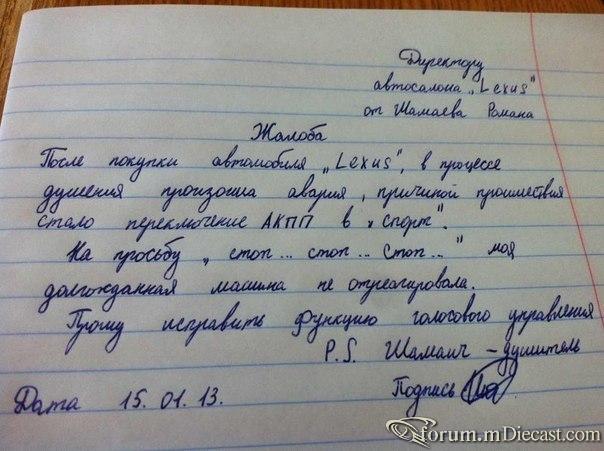 Директору
автосалона „Lexus"
от Шамаева Романа
Жалоба
После покупки автомобиля „Lexus", в процессе
душения произошла авария, причиной проишествия
стало переключение АКПП в „спорт".
На просьбу „стоп... стоп... стоп..." моя
долгожданная машина не отреагировала.
Прошу исправить функцию голосового управления
P.S. Шамаич – душитель
Дата 15.01.13. Подпись
forum.mDiecast.com